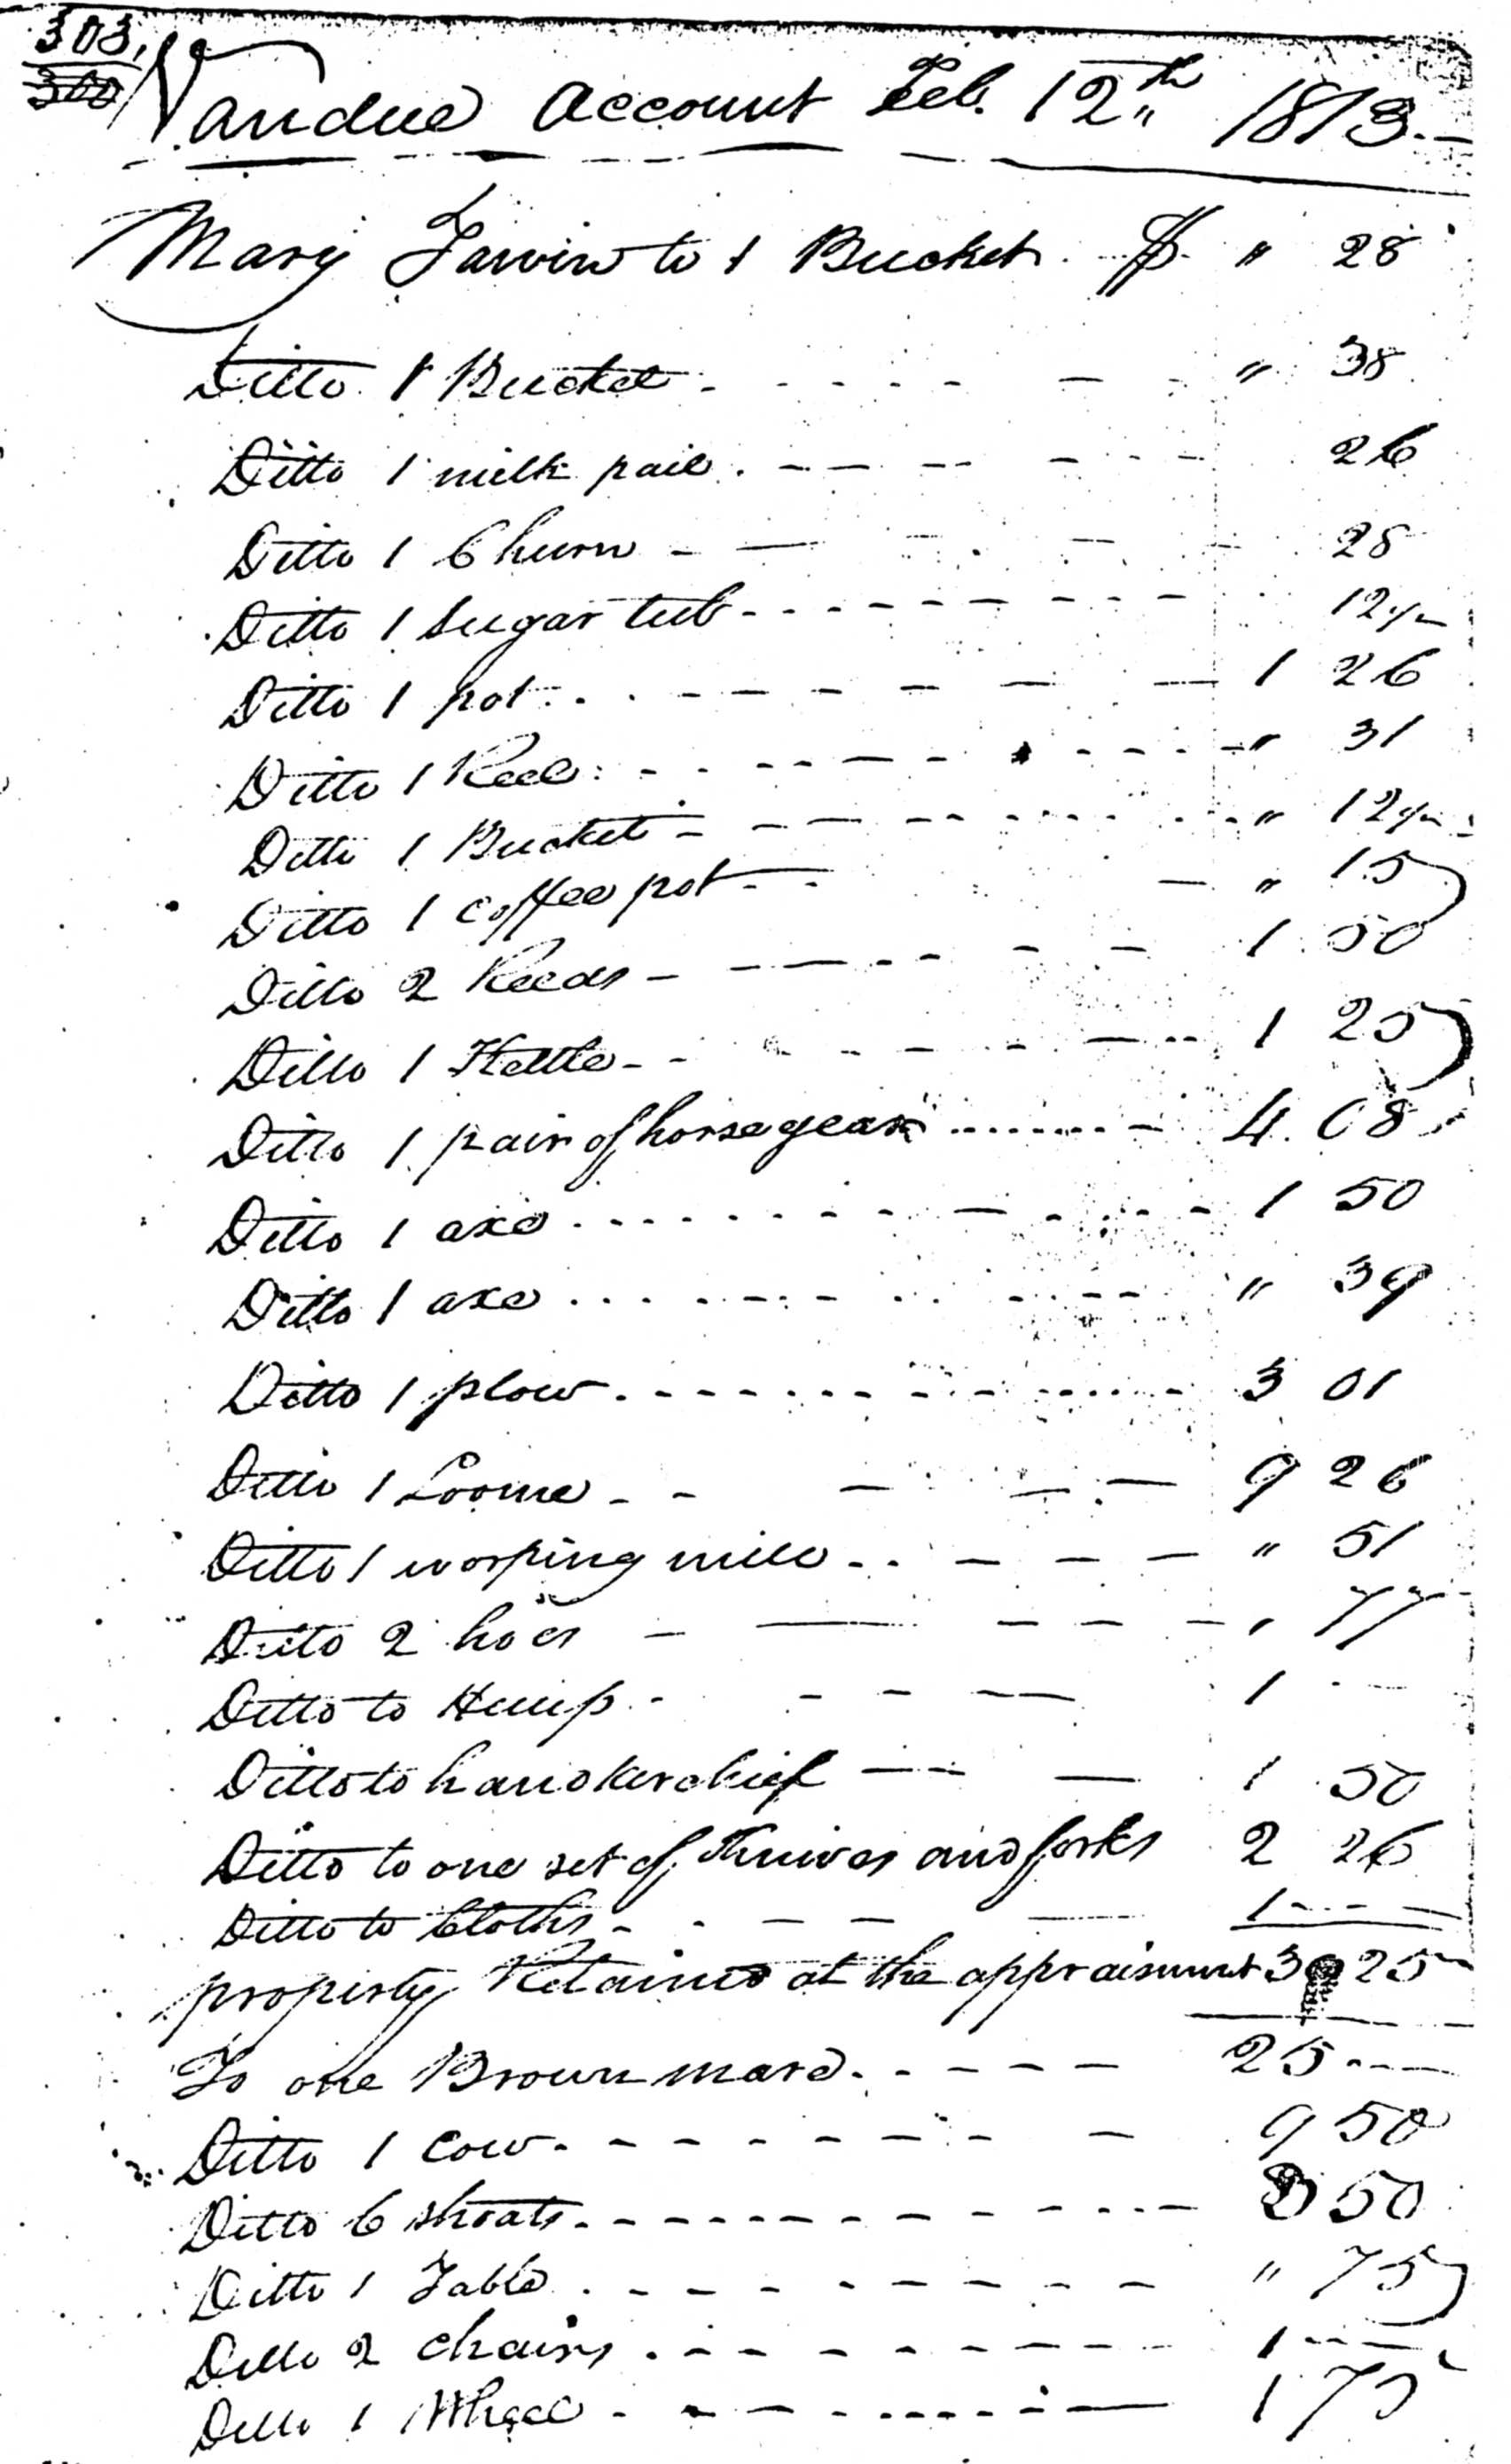 303,
300
Vandue account Feb. 12th 1813.
Mary Tarvin to 1 Bucket $ " 28
Ditto 1 Bucket " 38
Ditto 1 milk pail 26
Ditto 1 Churn 28
Ditto 1 Sugar tub 12 1/2
Ditto 1 pot 1 26
Ditto 1 Reel " 31
Ditto 1 Bucket " 12 1/2
Ditto 1 coffee pot " 15
Ditto 2 Reeds 1 50
Ditto 1 Kettle 1 25
Ditto 1 pair of horse gears 4. 08
Ditto 1 axe 1 50
Ditto 1 axe " 39
Ditto 1 plow 3 01
Ditto 1 Loome 9 26
Ditto 1 worping mill " 51
Ditto 2 hoes " 77
Ditto to Hemp 1
Ditto to handkerchief 1 50
Ditto to one set of Knives and forks 2 26
Ditto to Cloths 1
property Retained at the appraisment 25
To one Brown mare 25
Ditto 1 cow 9 50
Ditto 6 shoats 50
Ditto 1 Table " 75
Ditto 2 chairs 1
Ditto 1 Wheel 1 75